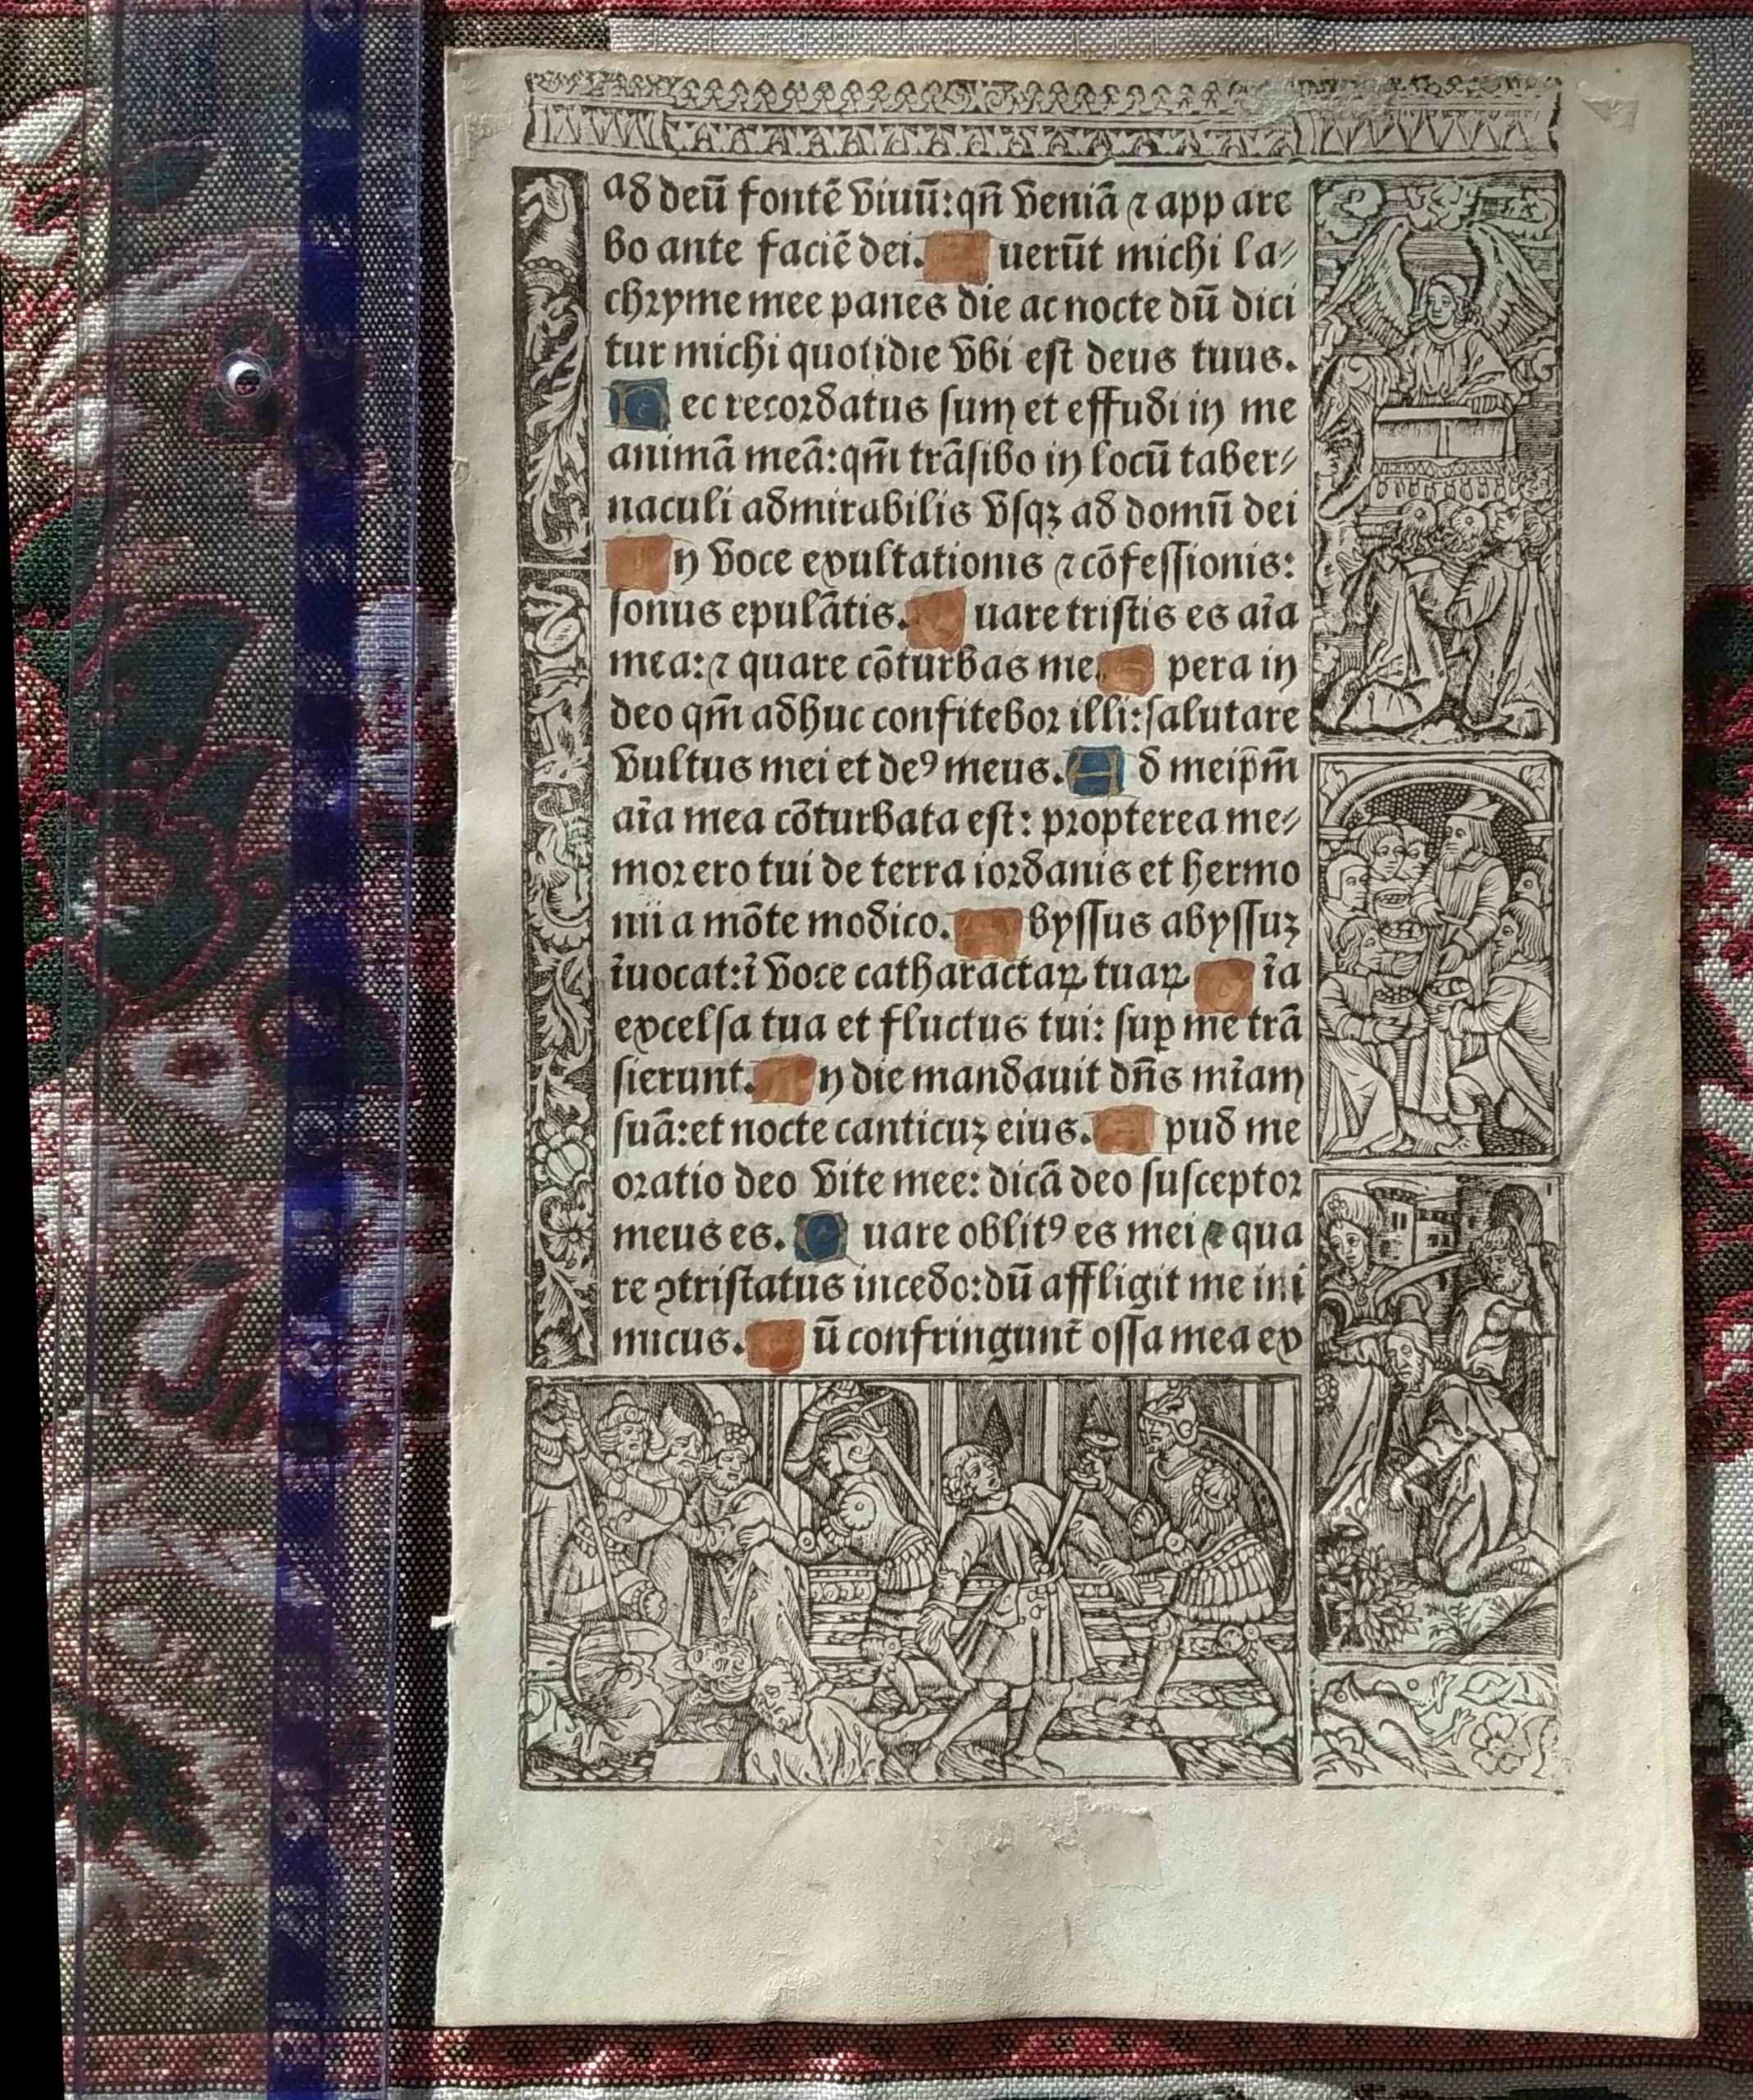 ad deū fontē viuū:qñ veniā ⁊ appare
bo ante faciē dei. Fuerūt michi la⸗
chryme mee panes die ac nocte dū dici
tur michi quotidie vbi est deus tuus.
Hec recordatus sum et effudi in me
animā meā:qm̄ trāsibo in locū taber⸗
naculi admirabilis vsqꝫ ad domū dei
In voce exultationis ⁊ cōfessionis:
sonus epulātis. Quare tristis es aīa
mea:⁊ quare cōturbas me. Spera in
deo qm̄ adhuc confitebor illi:salutare
vultus mei et deꝰ meus. Ad meip̄m̄
aīa mea cōturbata est: propterea me⸗
mor ero tui de terra iordanis et hermo
nii a mōte modico. Abyssus abyssuꝫ
īuocat:ī voce catharactaꝝ tuaꝝ Oīa
excelsa tua et fluctus tui: suꝑ me trā
sierunt. In die mandauit dn̄s mīam
suā:et nocte canticuꝫ eius. Apud me
oratio deo vite mee: dicā deo susceptor
meus es. Quare oblitꝰ es mei ⁊ qua
re ꝯtristatus incedo:dū affligit me ini
micus. Dū confringunt̄ ossa mea ex
0
1
2
3